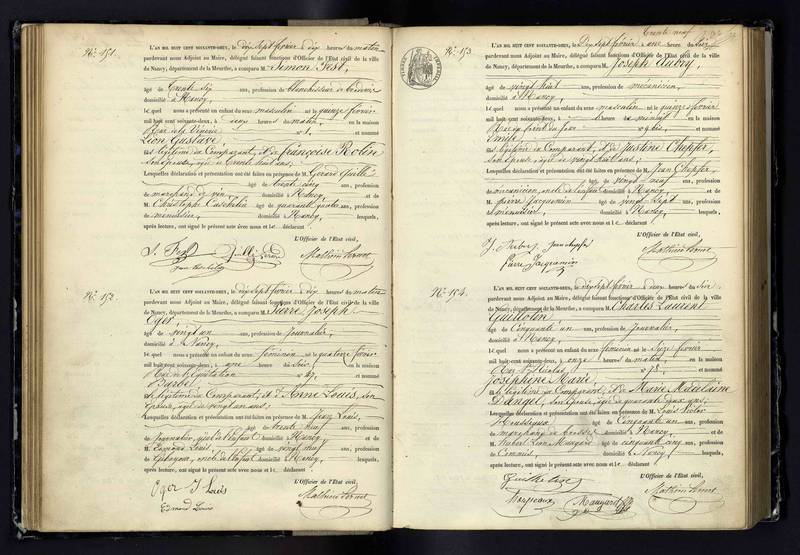 No. 151.
L'AN MIL HUIT CENT SOIXANTE-DEUX, le dix sept février à dix heures du matin
pardevant nous Adjoint au Maire, délégué faisant fonctions d'Officier de l'Etat civil de la ville
de Nancy, département de la Meurthe, a comparu M. Simon
âgé de trente six ans, profession de blanchisseur de
domicilié à Nancy,
lequel nous a présenté un enfant du sexe masculin né le quinze février
mil huit cent soixante-deux, à heures du matin, en la maison
Rue n° 1, et nommé
Léon Gustave,
fils légitime du Comparant, et de Françoise Robin
son épouse, âgée de trente huit ans;
Lesquelles déclaration et présentation ont été faites en présence de M. Gérard
âgé de trente cinq ans, profession
de marchand de vin, domicilié à Nancy, et de
M. Christophe âgé de quarante quatre ans, profession
de menuisier, domicilié à Nancy, lesquels,
après lecture, ont signé le présent acte avec nous et le déclarant
L'Officier de l'Etat civil,
No. 152.
L'AN MIL HUIT CENT SOIXANTE-DEUX, le dix sept février à dix heures du matin
pardevant nous Adjoint au Maire, délégué faisant fonctions d'Officier de l'Etat civil de la ville
de Nancy, département de la Meurthe, a comparu M. Pierre Joseph
Oger,
âgé de vingt un ans, profession de journalier,
domicilié à Nancy,
lequel nous a présenté un enfant du sexe féminin né le quatorze février
mil huit cent soixante-deux, à une heure du soir, en la maison
Rue de l'Equitation n° 47, et nommé
Barbe,
fille légitime du Comparant, et d'Anne Louis, son
épouse, âgée de vingt un ans;
Lesquelles déclaration et présentation ont été faites en présence de M. Jean Louis,
âgé de trente neuf ans, profession
de journalier, domicilié à Nancy et de
M. Edmond Louis, âgé de vingt neuf ans, profession
de oncle de l'enfant domicilié à Nancy, lesquels,
après lecture, ont signé le présent acte avec nous et le déclarant
L'Officier de l'Etat civil,
Oger J Louis
Edmond Louis
Trente neuf
No. 153
L'AN MIL HUIT CENT SOIXANTE-DEUX, le dix sept février à une heure du soir
pardevant nous Adjoint au Maire, délégué faisant fonctions d'Officier de l'Etat civil de la ville
de Nancy, département de la Meurthe, a comparu M. Joseph Aubry,
âgé de vingt huit ans, profession de mécanicien,
domicilié à Nancy,
lequel nous a présenté un enfant du sexe masculin né le quinze février
mil huit cent soixante-deux, à heure de minuit, en la maison
Rue et nommé
Emile,
fils légitime du Comparant, et de Justine
son épouse, âgée de vingt huit ans;
Lesquelles déclaration et présentation ont été faites en présence de M. Jean
âgé de vingt neuf ans, profession
de mécanicien, oncle de l'enfant domicilié à Nancy, et de
M. Pierre Jacquemin âgé de vingt sept ans, profession
de menuisier, domicilié à Nancy, lesquels,
après lecture, ont signé le présent acte avec nous et le déclarant
L'Officier de l'Etat civil,
J. Aubry
Pierre Jacquemin
No. 154.
L'AN MIL HUIT CENT SOIXANTE-DEUX, le dix sept février à deux heures du soir,
pardevant nous Adjoint au Maire, délégué faisant fonctions d'Officier de l'Etat civil de la ville
de Nancy, département de la Meurthe, a comparu M. Charles Laurent
âgé de cinquante un ans, profession de journalier,
domicilié à Nancy,
lequel nous a présenté un enfant du sexe féminin né le seize février
mil huit cent soixante-deux, à onze heures du matin, en la maison
Rue St Nicolas n° 78, et nommé
Joséphine Marie,
fille légitime du Comparant, et de Marie Madelaine
Dangel, son épouse, âgée de quarante deux ans;
Lesquelles déclaration et présentation ont été faites en présence de M. Louis Victor
âgé de cinquante un ans, profession
de marchand de domicilié à Nancy, et de
M. Hubert Léon âgé de cinquante cinq ans, profession
de commis, domicilié à Nancy, lesquels,
après lecture, ont signé le présent acte avec nous et le déclarant
L'Officier de l'Etat civil,